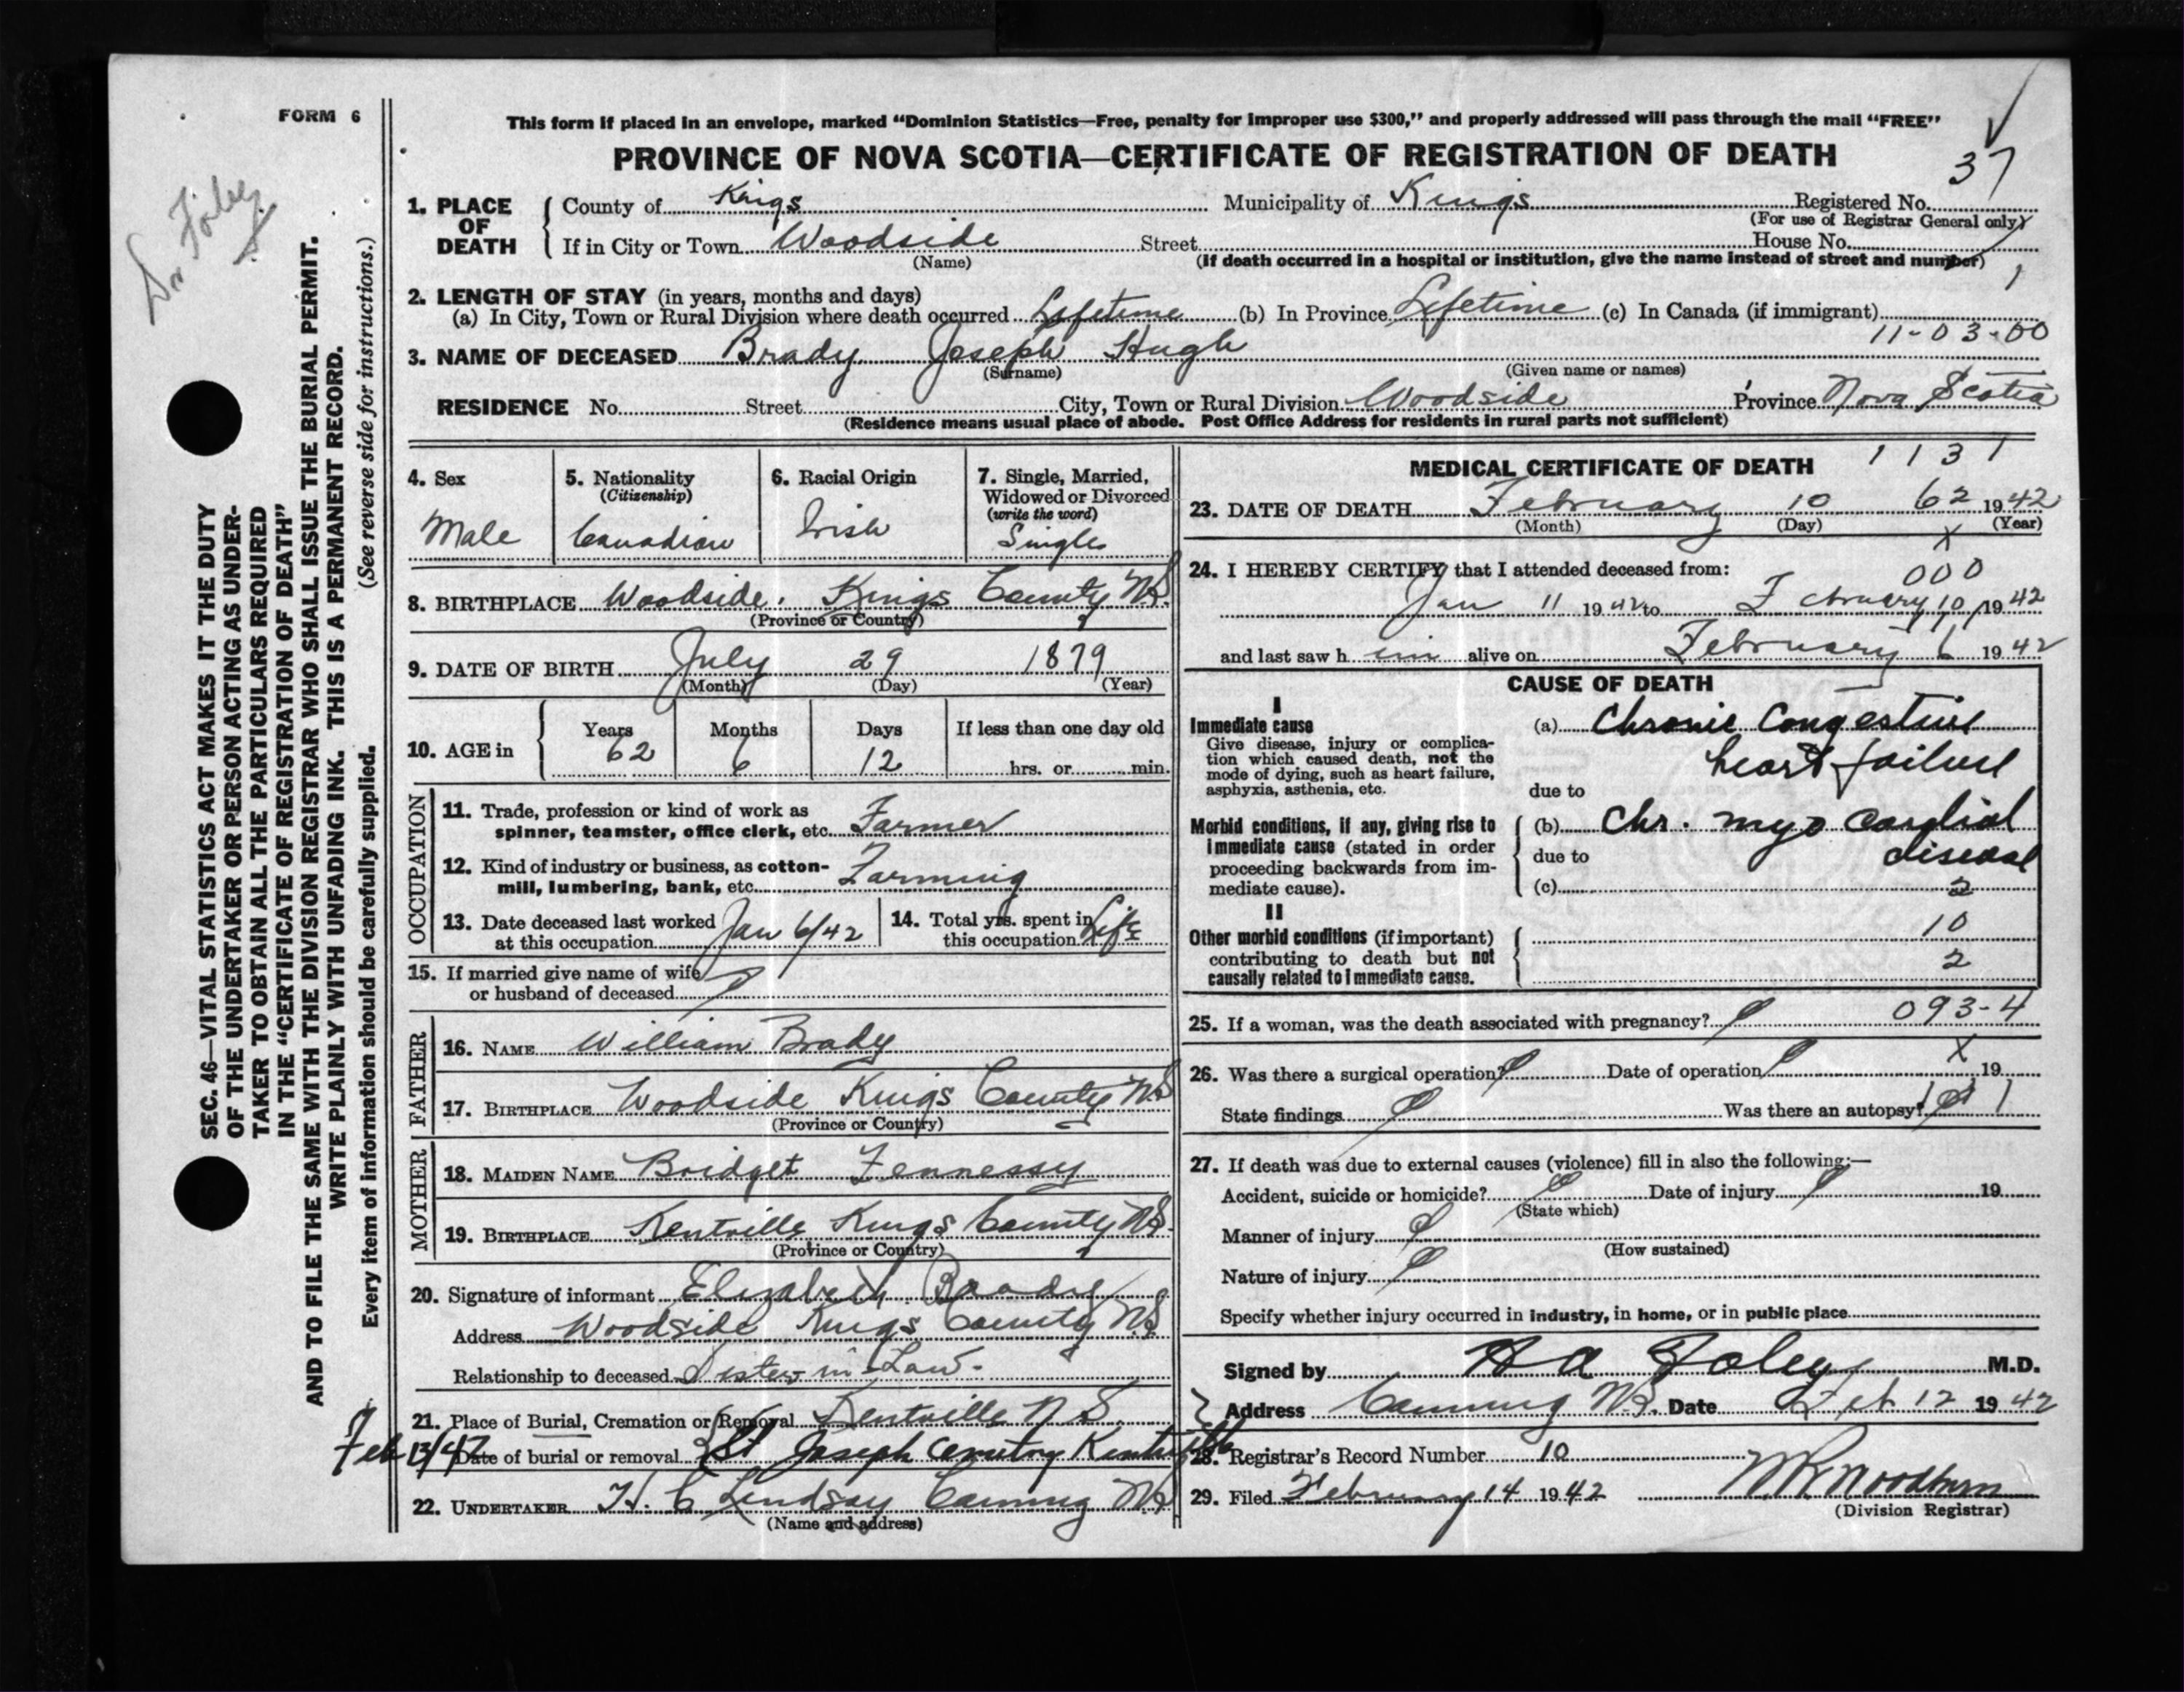 FORM 6
This form if placed in an envelope, marked “Dominion Statistics—Free, penalty for improper use $300,” and properly addressed will pass through the mail “FREE”
PROVINCE OF NOVA SCOTIA—CERTIFICATE OF REGISTRATION OF DEATH
37
Dr Foley
SEC. 46—VITAL STATISTICS ACT MAKES IT THE DUTY
OF THE UNDERTAKER OR PERSON ACTING AS UNDER-
TAKER TO OBTAIN ALL THE PARTICULARS REQUIRED
IN THE “CERTIFICATE OF REGISTRATION OF DEATH”
AND TO FILE THE SAME WITH THE DIVISION REGISTRAR WHO SHALL ISSUE THE BURIAL PERMIT.
WRITE PLAINLY WITH UNFADING INK. THIS IS A PERMANENT RECORD.
Every item of information should be carefully supplied. (See reverse side for instructions.)
1. PLACE OF DEATH
County of Kings Municipality of Kings Registered No.
(For use of Registrar General only)
If in City or Town Woodside Street House No.
(Name) (If death occurred in a hospital or institution, give the name instead of street and number)
1
2. LENGTH OF STAY (in years, months and days)
(a) In City, Town or Rural Division where death occurred Lifetime (b) In Province Lifetime (c) In Canada (if immigrant)
11-03-00
3. NAME OF DECEASED Brady Joseph Hugh
(Surname) (Given name or names)
RESIDENCE No. Street City, Town or Rural Division Woodside Province Nova Scotia
(Residence means usual place of abode. Post Office Address for residents in rural parts not sufficient)
4. Sex
Male
5. Nationality
(Citizenship)
Canadian
6. Racial Origin
Irish
7. Single, Married,
Widowed or Divorced
(write the word)
Single
8. BIRTHPLACE Woodside, Kings County N.S.
(Province or Country)
9. DATE OF BIRTH July 29 1879
(Month) (Day) (Year)
10. AGE in
Years Months Days If less than one day old
62 6 12 hrs. or min.
OCCUPATION
11. Trade, profession or kind of work as
spinner, teamster, office clerk, etc. Farmer
12. Kind of industry or business, as cotton-
mill, lumbering, bank, etc. Farming
13. Date deceased last worked
at this occupation Jan 6/42
14. Total yrs. spent in
this occupation Life
15. If married give name of wife
or husband of deceased
FATHER
16. NAME William Brady
17. BIRTHPLACE Woodside Kings County NS
(Province or Country)
MOTHER
18. MAIDEN NAME Bridget Fennessy
19. BIRTHPLACE Kentville Kings County NS.
(Province or Country)
20. Signature of informant Elizabeth Brady
Address Woodside Kings County NS
Relationship to deceased Sister-in-Law.
21. Place of Burial, Cremation or Removal Kentville N S.
Feb 13/42 Date of burial or removal St Joseph Cemetry Kentville
22. UNDERTAKER H. C Lindsay Canning NS
(Name and address)
MEDICAL CERTIFICATE OF DEATH 1131
23. DATE OF DEATH February 10 62 1942
(Month) (Day) (Year)
X
24. I HEREBY CERTIFY that I attended deceased from:
000
Jan 11 1942 to February 10, 1942
and last saw him alive on February 6 1942
CAUSE OF DEATH
I
Immediate cause
Give disease, injury or complica-
tion which caused death, not the
mode of dying, such as heart failure,
asphyxia, asthenia, etc.
(a) Chronic Congestive
heart failure
due to
Morbid conditions, if any, giving rise to
immediate cause (stated in order
proceeding backwards from im-
mediate cause).
(b) Chr. myo cardial
due to disease
(c) 2
II
Other morbid conditions (if important)
contributing to death but not
causally related to immediate cause.
10
2
25. If a woman, was the death associated with pregnancy? 093-4
X
26. Was there a surgical operation? Date of operation 19
State findings Was there an autopsy? 1
27. If death was due to external causes (violence) fill in also the following:—
Accident, suicide or homicide? Date of injury 19
(State which)
Manner of injury
(How sustained)
Nature of injury
Specify whether injury occurred in industry, in home, or in public place
Signed by H A Foley M.D.
Address Canning N.S. Date Feb 12 1942
28. Registrar’s Record Number 10
29. Filed February 14 1942
(Division Registrar)